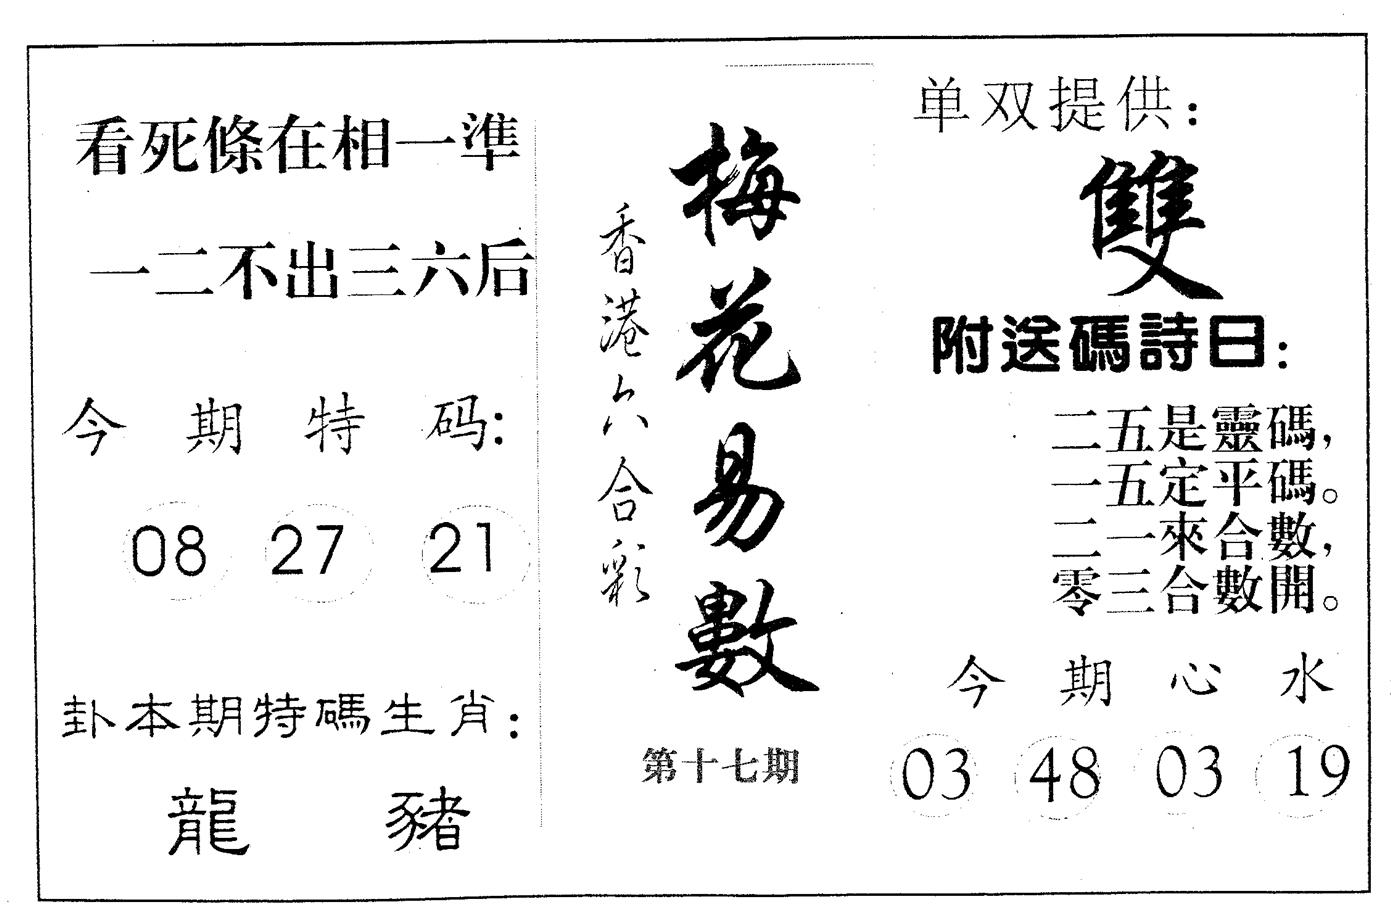 看死條在相一準
一二不出三六后
今期特码:
08 27 21
卦本期特碼生肖:
龍 豬
梅花易數
香港六合彩
第十七期
单双提供:
雙
附送碼詩曰:
二五是靈碼,
一五定平碼。
二一來合數,
零三合數開。
今期心水
03 48 03 19